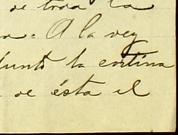 de toda la
A la vez
junto la cortina
de ésta el